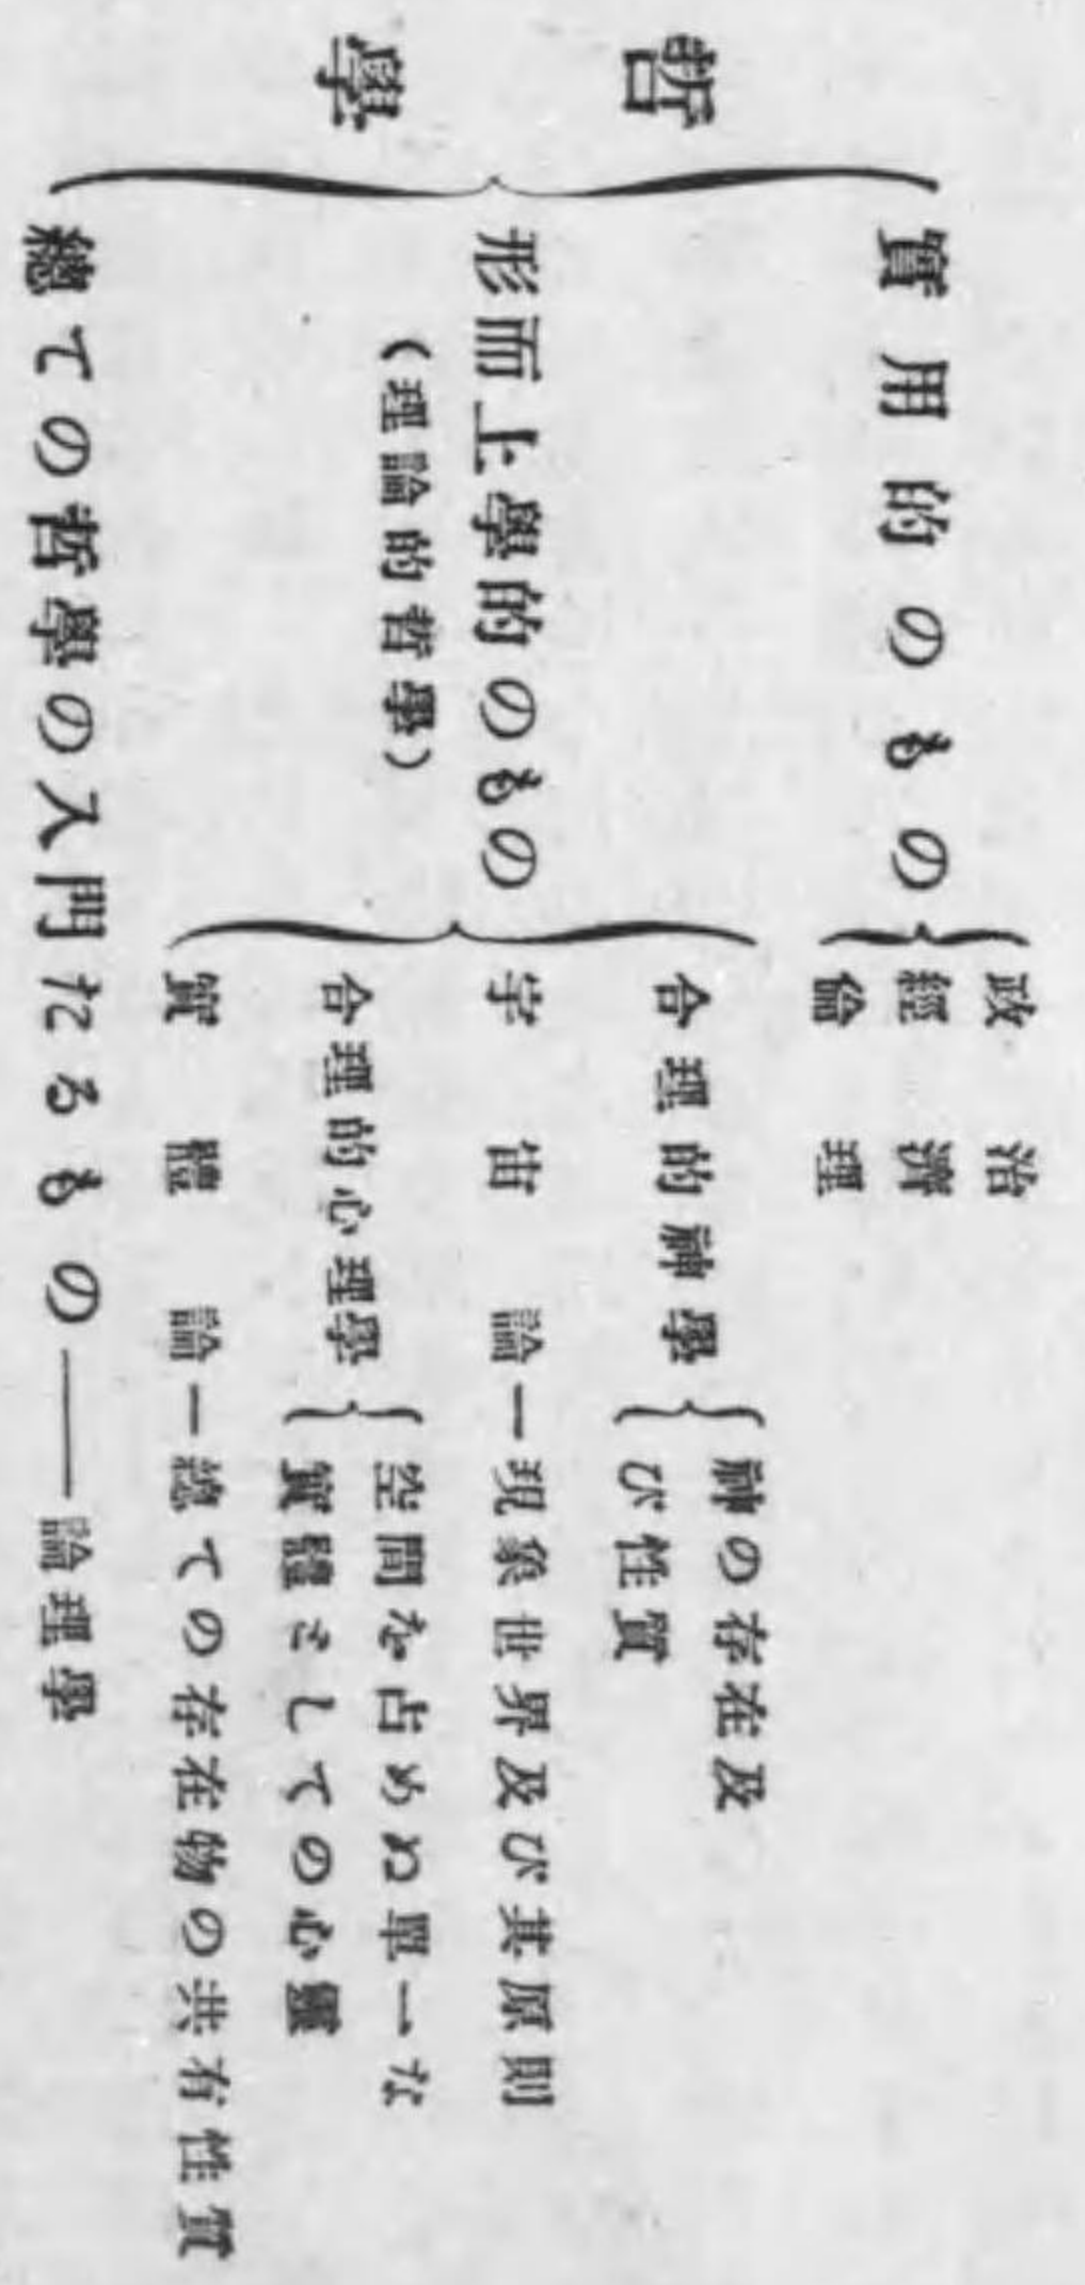 哲學
實用的のもの
政治
經濟
倫理
形而上學的のもの
（理論的哲學）
合理的神學
神の存在及
び性質
宇宙論―現象世界及び其原則
合理的心理學
空間を占めぬ單一な
實體としての心靈
實體論―總ての存在物の共有性質
總ての哲學の入門たるもの――論理學